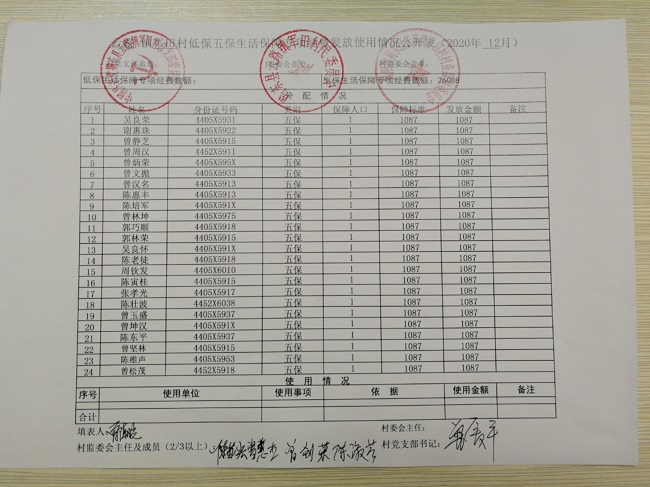 镇军田村低保五保生活保障 发放使用情况公开表（2020年 12月）
五保生活保障专项经费数额：26088
分配情况
序号 姓名 身份证号码 类别 保障人口 保障标准 发放金额 备注
1 吴良荣 4405X5931 五保 1 1087 1087
2 谢惠珠 4405X5922 五保 1 1087 1087
3 曾静芝 4405X5915 五保 1 1087 1087
4 曾周汉 4452X5911 五保 1 1087 1087
5 曾炳荣 4405X595X 五保 1 1087 1087
6 曾文抛 4405X5933 五保 1 1087 1087
7 曾汉名 4405X5913 五保 1 1087 1087
8 陈惠丰 4405X5913 五保 1 1087 1087
9 陈培军 4405X591X 五保 1 1087 1087
10 曾林坤 4405X5975 五保 1 1087 1087
11 郭巧顺 4405X5918 五保 1 1087 1087
12 郭林荣 4405X5915 五保 1 1087 1087
13 吴良怀 4405X591X 五保 1 1087 1087
14 陈老徒 4405X5918 五保 1 1087 1087
15 周钦发 4405X6010 五保 1 1087 1087
16 陈寅桂 4405X5915 五保 1 1087 1087
17 张孝光 4405X5917 五保 1 1087 1087
18 陈壮波 4452X6038 五保 1 1087 1087
19 曾玉盛 4405X5937 五保 1 1087 1087
20 曾坤汉 4405X591X 五保 1 1087 1087
21 陈东平 4405X5937 五保 1 1087 1087
22 曾坚林 4405X5915 五保 1 1087 1087
23 陈维声 4405X5953 五保 1 1087 1087
24 曾松茂 4452X5918 五保 1 1087 1087
使用情况
序号 使用单位 使用事项 依据 使用金额 备注
合计
填表人： 村委会主任：
村监委会主任及成员（2/3以上）： 村党支部书记：